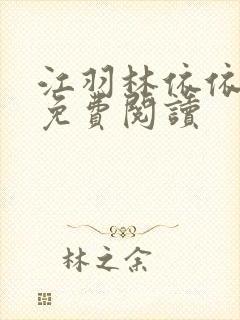 江羽林依依
免費閱讀
林之余